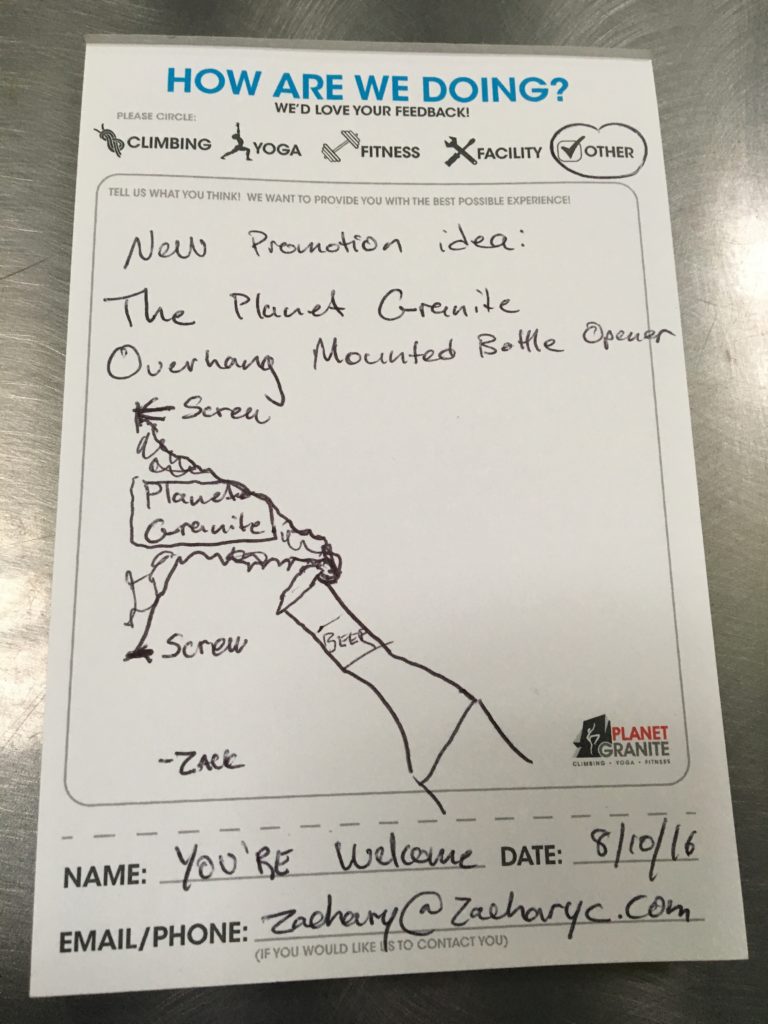 HOW ARE WE DOING?
WE'D LOVE YOUR FEEDBACK!
PLEASE CIRCLE:
CLIMBING YOGA FITNESS FACILITY OTHER
TELL US WHAT YOU THINK! WE WANT TO PROVIDE YOU WITH THE BEST POSSIBLE EXPERIENCE!
New Promotion idea:
The Planet Granite
Overhang Mounted Bottle Opener
Screw
Planet
Granite
BEER
Screw
-ZACK
PLANET
GRANITE
CLIMBING • YOGA • FITNESS
NAME: YOU'RE Welcome DATE: 8/10/16
EMAIL/PHONE: Zachary@Zacharyc.com
(IF YOU WOULD LIKE US TO CONTACT YOU)